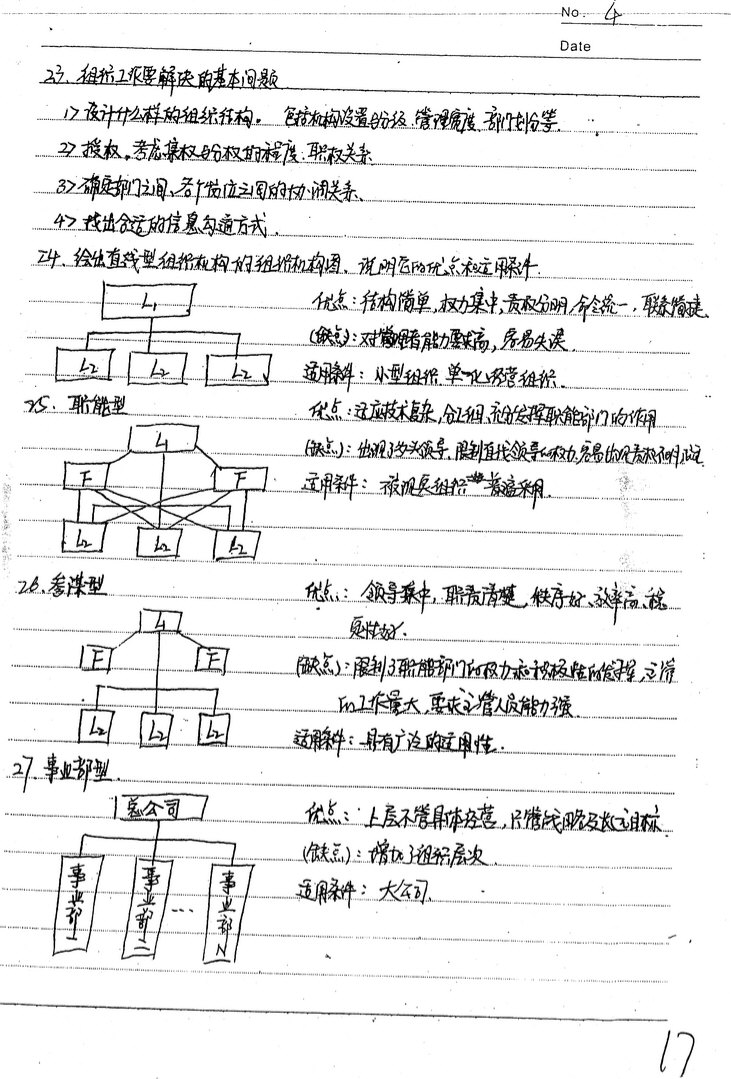 No. 4
Date
23、组织工作要解决的基本问题
1> 设计什么样的组织结构。包括机构设置与分级、管理宽度、部门划分等.
2> 授权。考虑集权与分权的程度、职权关系.
3> 确定部门之间、各个岗位之间的协调关系.
4> 找出合适的信息沟通方式.
24、绘出直线型组织机构的组织机构图、说明它的优点和适用条件.
L1
L2 L2 L2
优点:结构简单,权力集中,责权分明,命令统一,联系简捷.
(缺点):对管理者能力要求高,容易失误.
适用条件:小型组织、单一化经营组织.
25、职能型
L1
F F
L2 L2 L2
优点:适应技术复杂,分工细、充分发挥职能部门的作用
(缺点):出现了多头领导、限制直线领导的权力,容易出现责权不明
适用条件:被现实组织普遍采用.
26、参谋型
L1
F F
L2 L2 L2
优点:领导集中,职责清楚,秩序好、效率高、稳
定性好.
(缺点):限制了职能部门的权力和积极性的发挥,主管
的工作量大,要求主管人员能力强.
适用条件:具有广泛的适用性.
27、事业部型.
总公司
事业部一 事业部二 … 事业部N
优点:上层不管具体经营,只管战略及长远目标.
(缺点):增加了组织层次.
适用条件:大公司.
17